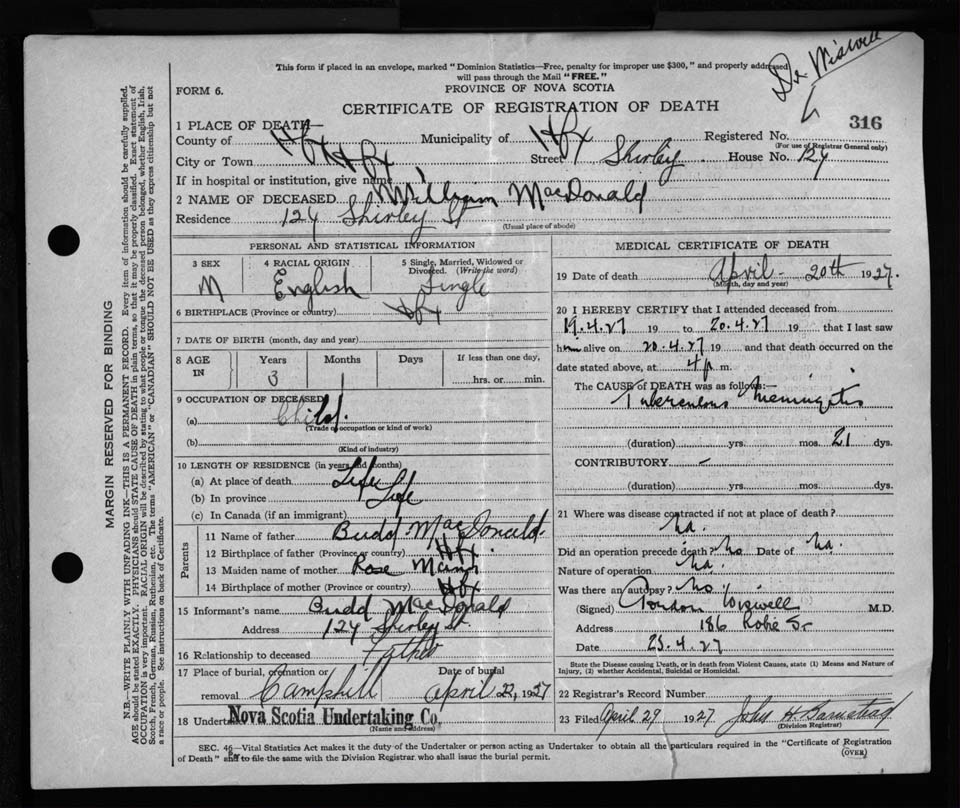 Dr Wiswell
This form if placed in an envelope, marked "Dominion Statistics—Free, penalty for improper use $300," and properly addressed
will pass through the Mail "FREE."
FORM 6.
PROVINCE OF NOVA SCOTIA
CERTIFICATE OF REGISTRATION OF DEATH
316
1 PLACE OF DEATH—
County of Hfx Municipality of Hfx Registered No.
(For use of Registrar General only)
City or Town Hfx Street Shirley House No. 124
If in hospital or institution, give name
2 NAME OF DECEASED William MacDonald
Residence 124 Shirley St
(Usual place of abode)
PERSONAL AND STATISTICAL INFORMATION
3 SEX 4 RACIAL ORIGIN 5 Single, Married, Widowed or Divorced. (Write the word)
M English Single
6 BIRTHPLACE (Province or country) Hfx
7 DATE OF BIRTH (month, day and year)
8 AGE IN Years Months Days If less than one day,
3 1 hrs. or min.
9 OCCUPATION OF DECEASED
(a) Child.
(Trade or occupation or kind of work)
(b)
(Kind of industry)
10 LENGTH OF RESIDENCE (in years and months)
(a) At place of death Life
(b) In province Life
(c) In Canada (if an immigrant)
Parents
11 Name of father Budd MacDonald.
12 Birthplace of father (Province or country) Hfx.
13 Maiden name of mother Rose
14 Birthplace of mother (Province or country) Hfx
15 Informant's name Budd MacDonald
Address 124 Shirley St.
16 Relationship to deceased Father
17 Place of burial, cremation or removal Camphill Date of burial April 22, 1927
18 Undertaker Nova Scotia Undertaking Co.
(Name and address)
MEDICAL CERTIFICATE OF DEATH
19 Date of death April - 20th 1927.
(Month, day and year)
20 I HEREBY CERTIFY that I attended deceased from
19.4.27 19 to 20.4.27 19 that I last saw
him alive on 20.4.27 19 and that death occurred on the
date stated above, at 4 p m.
The CAUSE of DEATH was as follows:—
Tuberculous Meningitis
(duration) yrs. mos. 21 dys.
CONTRIBUTORY —
(duration) yrs. mos. dys.
21 Where was disease contracted if not at place of death?
na.
Did an operation precede death? no Date of na.
Nature of operation na.
Was there an autopsy? no
(Signed) Gordon Wiswell M.D.
Address 186 Robie St
Date 23.4.27
State the Disease causing Death, or in death from Violent Causes, state (1) Means and Nature of
Injury, (2) whether Accidental, Suicidal or Homicidal.
22 Registrar's Record Number
23 Filed April 29 1927 John H. Barnstead
(Division Registrar)
SEC. 46—Vital Statistics Act makes it the duty of the Undertaker or person acting as Undertaker to obtain all the particulars required in the "Certificate of Registration
of Death" and to file the same with the Division Registrar who shall issue the burial permit.
(OVER)
MARGIN RESERVED FOR BINDING
N.B.—WRITE PLAINLY WITH UNFADING INK—THIS IS A PERMANENT RECORD. Every item of information should be carefully supplied.
AGE should be stated EXACTLY. PHYSICIANS should STATE CAUSE OF DEATH in plain terms, so that it may be properly classified. Exact statement of
OCCUPATION is very important. RACIAL ORIGIN will be described by stating to what people or tongue the deceased person belonged, whether English, Irish,
Scotch, French, German, Russian, Ruthenian, etc. The terms "AMERICAN" or "CANADIAN" SHOULD NOT BE USED as they express citizenship but not
a race or people. See instructions on back of Certificate.